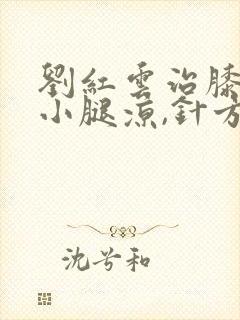 劉紅雲治膝
小腿涼,針方
沈兮和